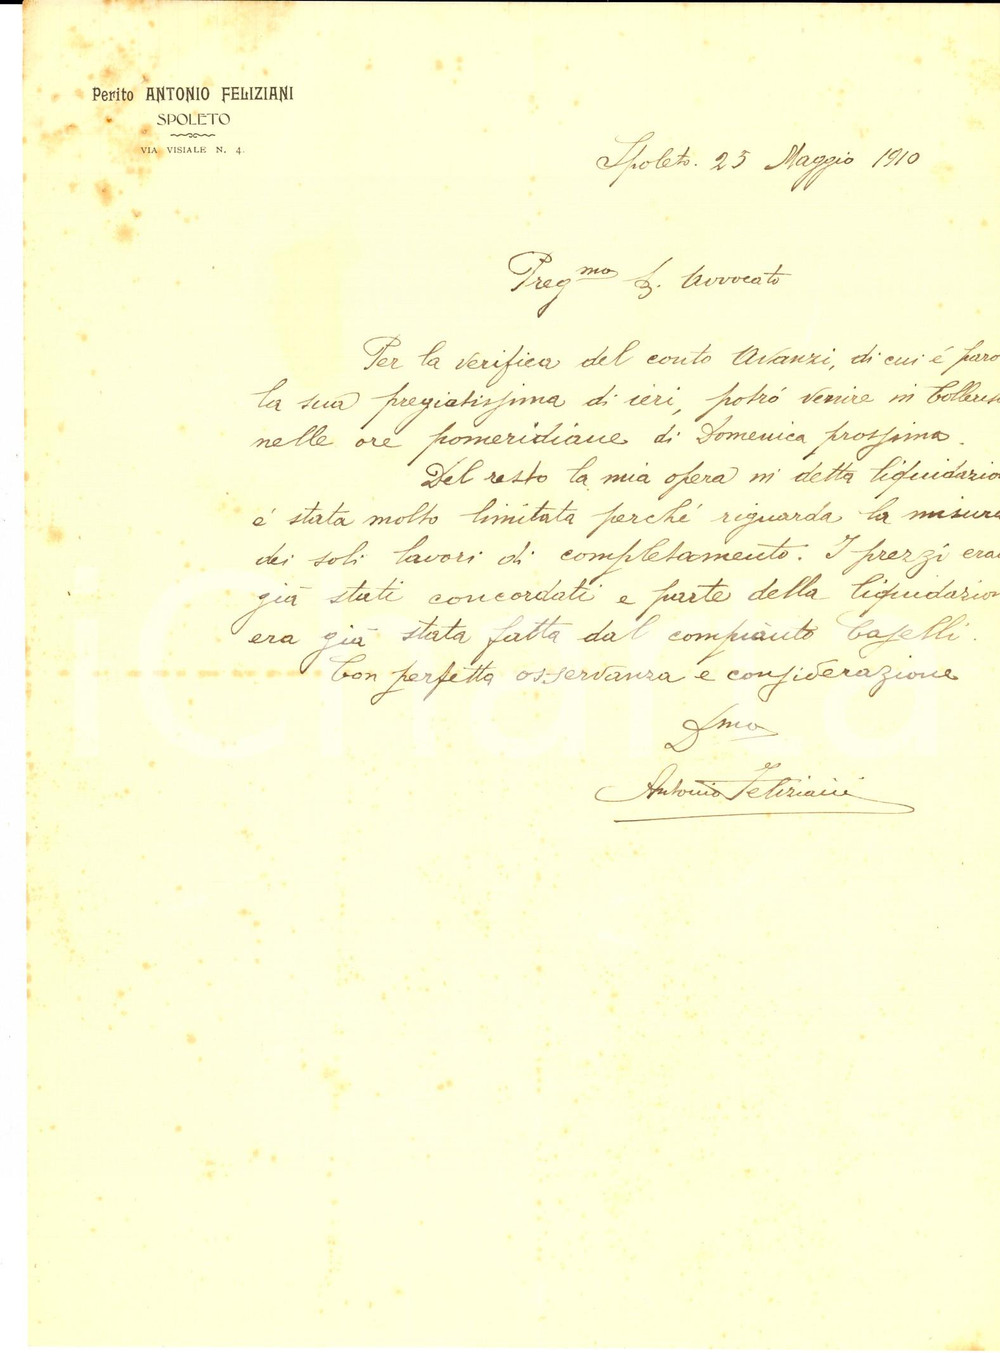 Perito ANTONIO FELIZIANI
SPOLETO
VIA VISIALE N. 4.
Spoleto. 25 Maggio 1910
Preg.mo S. Avvocato
Per la verifica del conto Avanzi, di cui é paro
la sua pregiatissima di ieri, potró venire in Collerisa
nelle ore pomeridiane di Domenica prossima.
Del resto la mia opera in detta liquidazio
é stata molto limitata perché riguarda la misura
dei soli lavori di completamento. I prezzi era
giá stati concordati e parte della liquidazion
era giá stata fatta dal compianto Caselli.
Con perfetta osservanza e considerazione
Dmo
Antonio Feliziani